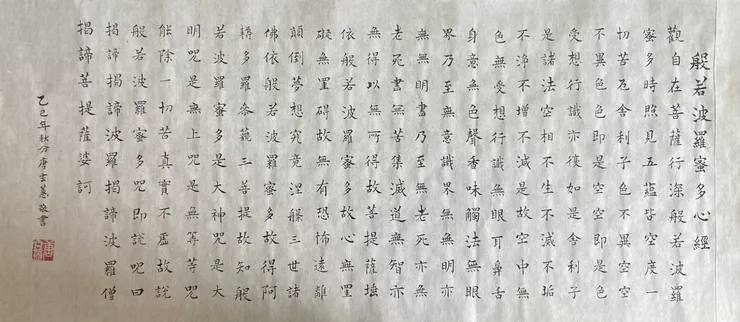 般若波羅蜜多心經
觀自在菩薩行深般若波羅
蜜多時照見五蘊皆空度一
切苦厄舍利子色不異空空
不異色色即是空空即是色
受想行識亦復如是舍利子
是諸法空相不生不滅不垢
不淨不增不減是故空中無
色無受想行識無眼耳鼻舌
身意無色聲香味觸法無眼
界乃至無意識界無無明亦
無無明盡乃至無老死亦無
老死盡無苦集滅道無智亦
無得以無所得故菩提薩埵
依般若波羅蜜多故心無罣
礙無罣碍故無有恐怖遠離
顛倒夢想究竟涅槃三世諸
佛依般若波羅蜜多故得阿
耨多羅叁藐三菩提故知般
若波羅蜜多是大神咒是大
明咒是無上咒是無等等咒
能除一切苦真實不虛故說
般若波羅蜜多咒即說咒曰
揭諦揭諦波羅揭諦波羅僧
揭諦菩提薩婆訶
乙巳年秋分唐吉慧敬書